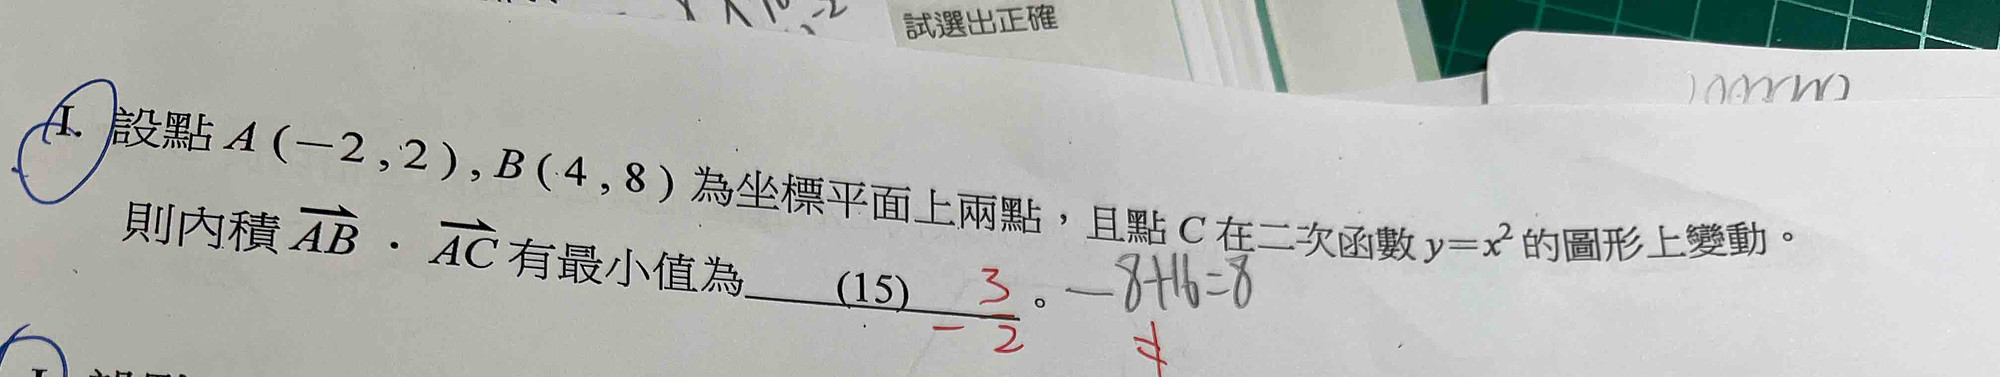 試選出正確
I. 設點 A(-2,2),B(4,8)為坐標平面上兩點,且點 C 在二次函數 y=x² 的圖形上變動。
則內積 \overrightarrow{AB} · \overrightarrow{AC} 有最小值為 (15) -3/2 。 -8+16=8